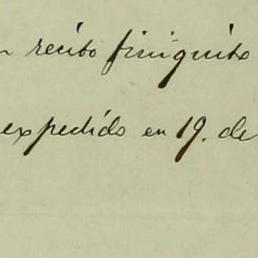 recibo finiquito
expedido en 19. de